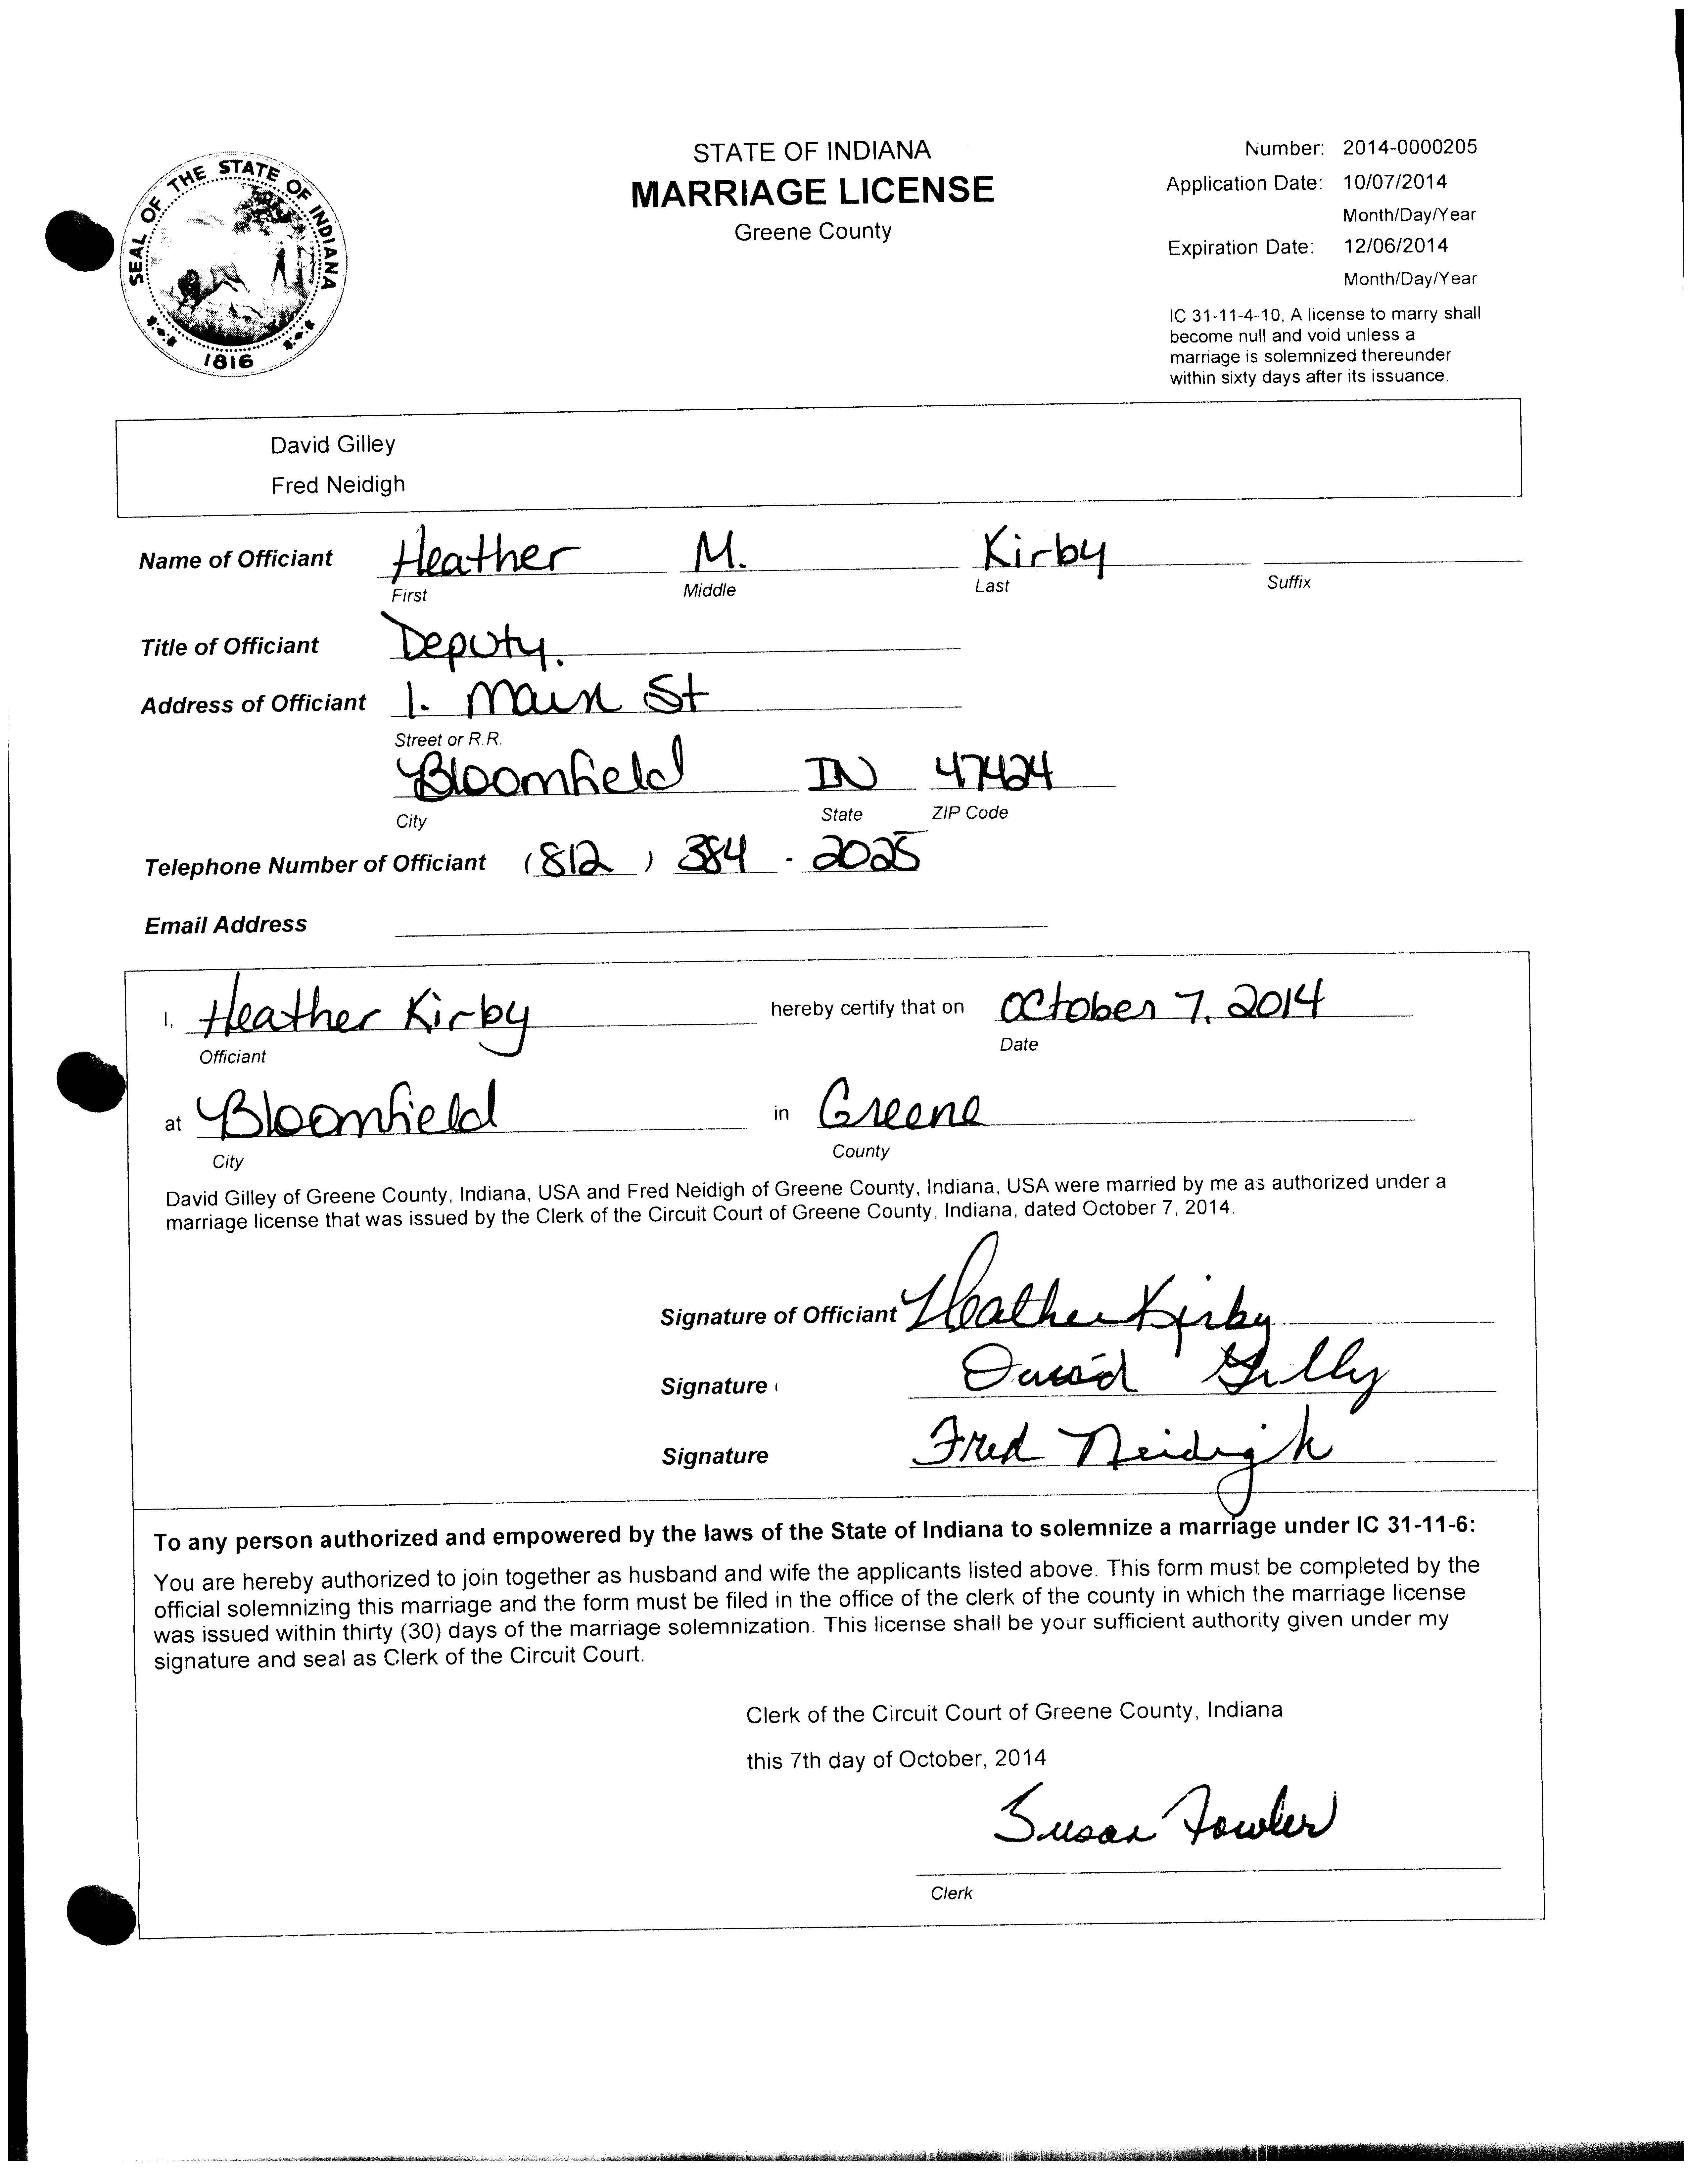 SEAL OF THE STATE OF INDIANA
1816
STATE OF INDIANA
MARRIAGE LICENSE
Greene County
Number: 2014-0000205
Application Date: 10/07/2014
Month/Day/Year
Expiration Date: 12/06/2014
Month/Day/Year
IC 31-11-4-10, A license to marry shall
become null and void unless a
marriage is solemnized thereunder
within sixty days after its issuance.
David Gilley
Fred Neidigh
Name of Officiant Heather M. Kirby
First Middle Last Suffix
Title of Officiant Deputy.
Address of Officiant 1. Main St
Street or R.R.
Bloomfield IN 47424
City State ZIP Code
Telephone Number of Officiant (812) 384 - 2025
Email Address
I, Heather Kirby hereby certify that on October 7, 2014
Officiant Date
at Bloomfield in Greene
City County
David Gilley of Greene County, Indiana, USA and Fred Neidigh of Greene County, Indiana, USA were married by me as authorized under a
marriage license that was issued by the Clerk of the Circuit Court of Greene County, Indiana, dated October 7, 2014.
Signature of Officiant Heather Kirby
Signature David Gilly
Signature Fred Neidigh
To any person authorized and empowered by the laws of the State of Indiana to solemnize a marriage under IC 31-11-6:
You are hereby authorized to join together as husband and wife the applicants listed above. This form must be completed by the
official solemnizing this marriage and the form must be filed in the office of the clerk of the county in which the marriage license
was issued within thirty (30) days of the marriage solemnization. This license shall be your sufficient authority given under my
signature and seal as Clerk of the Circuit Court.
Clerk of the Circuit Court of Greene County, Indiana
this 7th day of October, 2014
Susan Fowler
Clerk